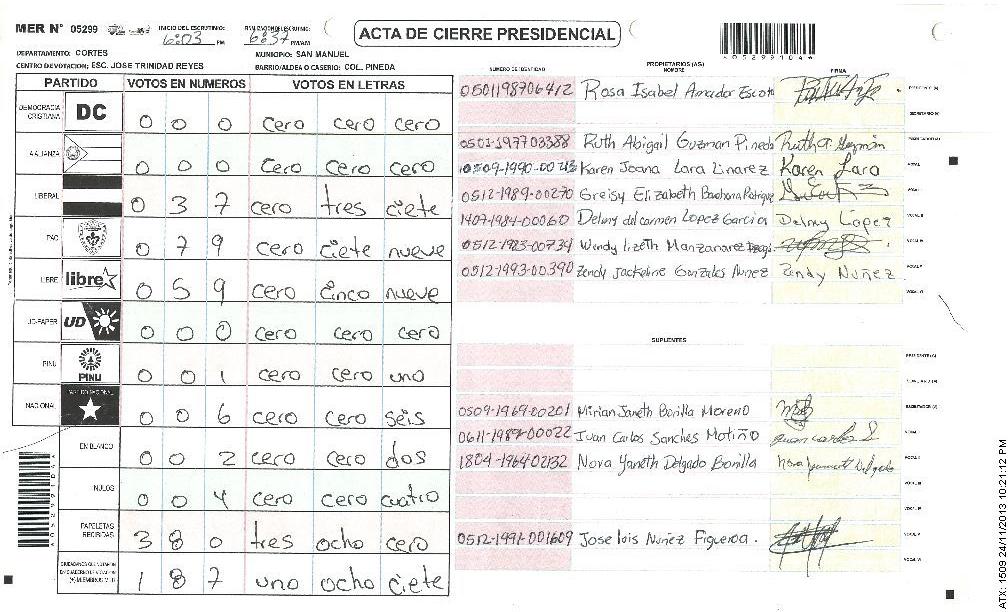 MER N° 05299 INICIO DEL ESCRUTINIO: 6:03 PM 6:37 PM/AM
ACTA DE CIERRE PRESIDENCIAL
*05299104*
DEPARTAMENTO: CORTES MUNICIPIO: SAN MANUEL
CENTRO DE VOTACION: ESC. JOSE TRINIDAD REYES BARRIO/ALDEA O CASERIO: COL. PINEDA
PARTIDO VOTOS EN NUMEROS VOTOS EN LETRAS
DEMOCRACIA CRISTIANA DC 0 0 0 cero cero cero
ALIANZA 0 0 0 cero cero cero
LIBERAL 0 3 7 cero tres ciete
PAC 0 7 9 cero ciete nueve
LIBRE libre 0 5 9 cero cinco nueve
UD-FAPER UD 0 0 0 cero cero cero
PINU PINU 0 0 1 cero cero uno
NACIONAL 0 0 6 cero cero seis
EN BLANCO 0 0 2 cero cero dos
NULOS 0 0 4 cero cero cuatro
PAPELETAS RECIBIDAS 3 8 0 tres ocho cero
1 8 7 uno ocho ciete
NUMERO DE IDENTIDAD PROPIETARIOS (AS) NOMBRE FIRMA
0501198706412 Rosa Isabel Amador Escoto
0501-197703388 Ruth Abigail Guzman Pineda Ruth a. Guzmán
0509-1990-00213 Karen Joana Lara Linarez Karen Lara
0512-1989-00270 Greisy Elizabeth
1407-1984-00060 Delmy del carmen Lopez Garcia Delmy Lopez
0512-1923-00734 Wendy lizeth Manzanarez
0512-1993-00390 Zendy Jackeline Gonzales Nunez Zendy Nuñez
SUPLENTES
0509-1969-00201 Mirian Janeth Bonilla Moreno
0611-1989-00022 Juan Carlos Sanches Motiño Juan carlos S.
1804-1964-02132 Nora Yaneth Delgado Bonilla Nora Yanneth Delgado
0512-1991-001609 Jose lois Nuñez Figueroa.
ATX: 1509 24/11/2013 10:21:12 PM